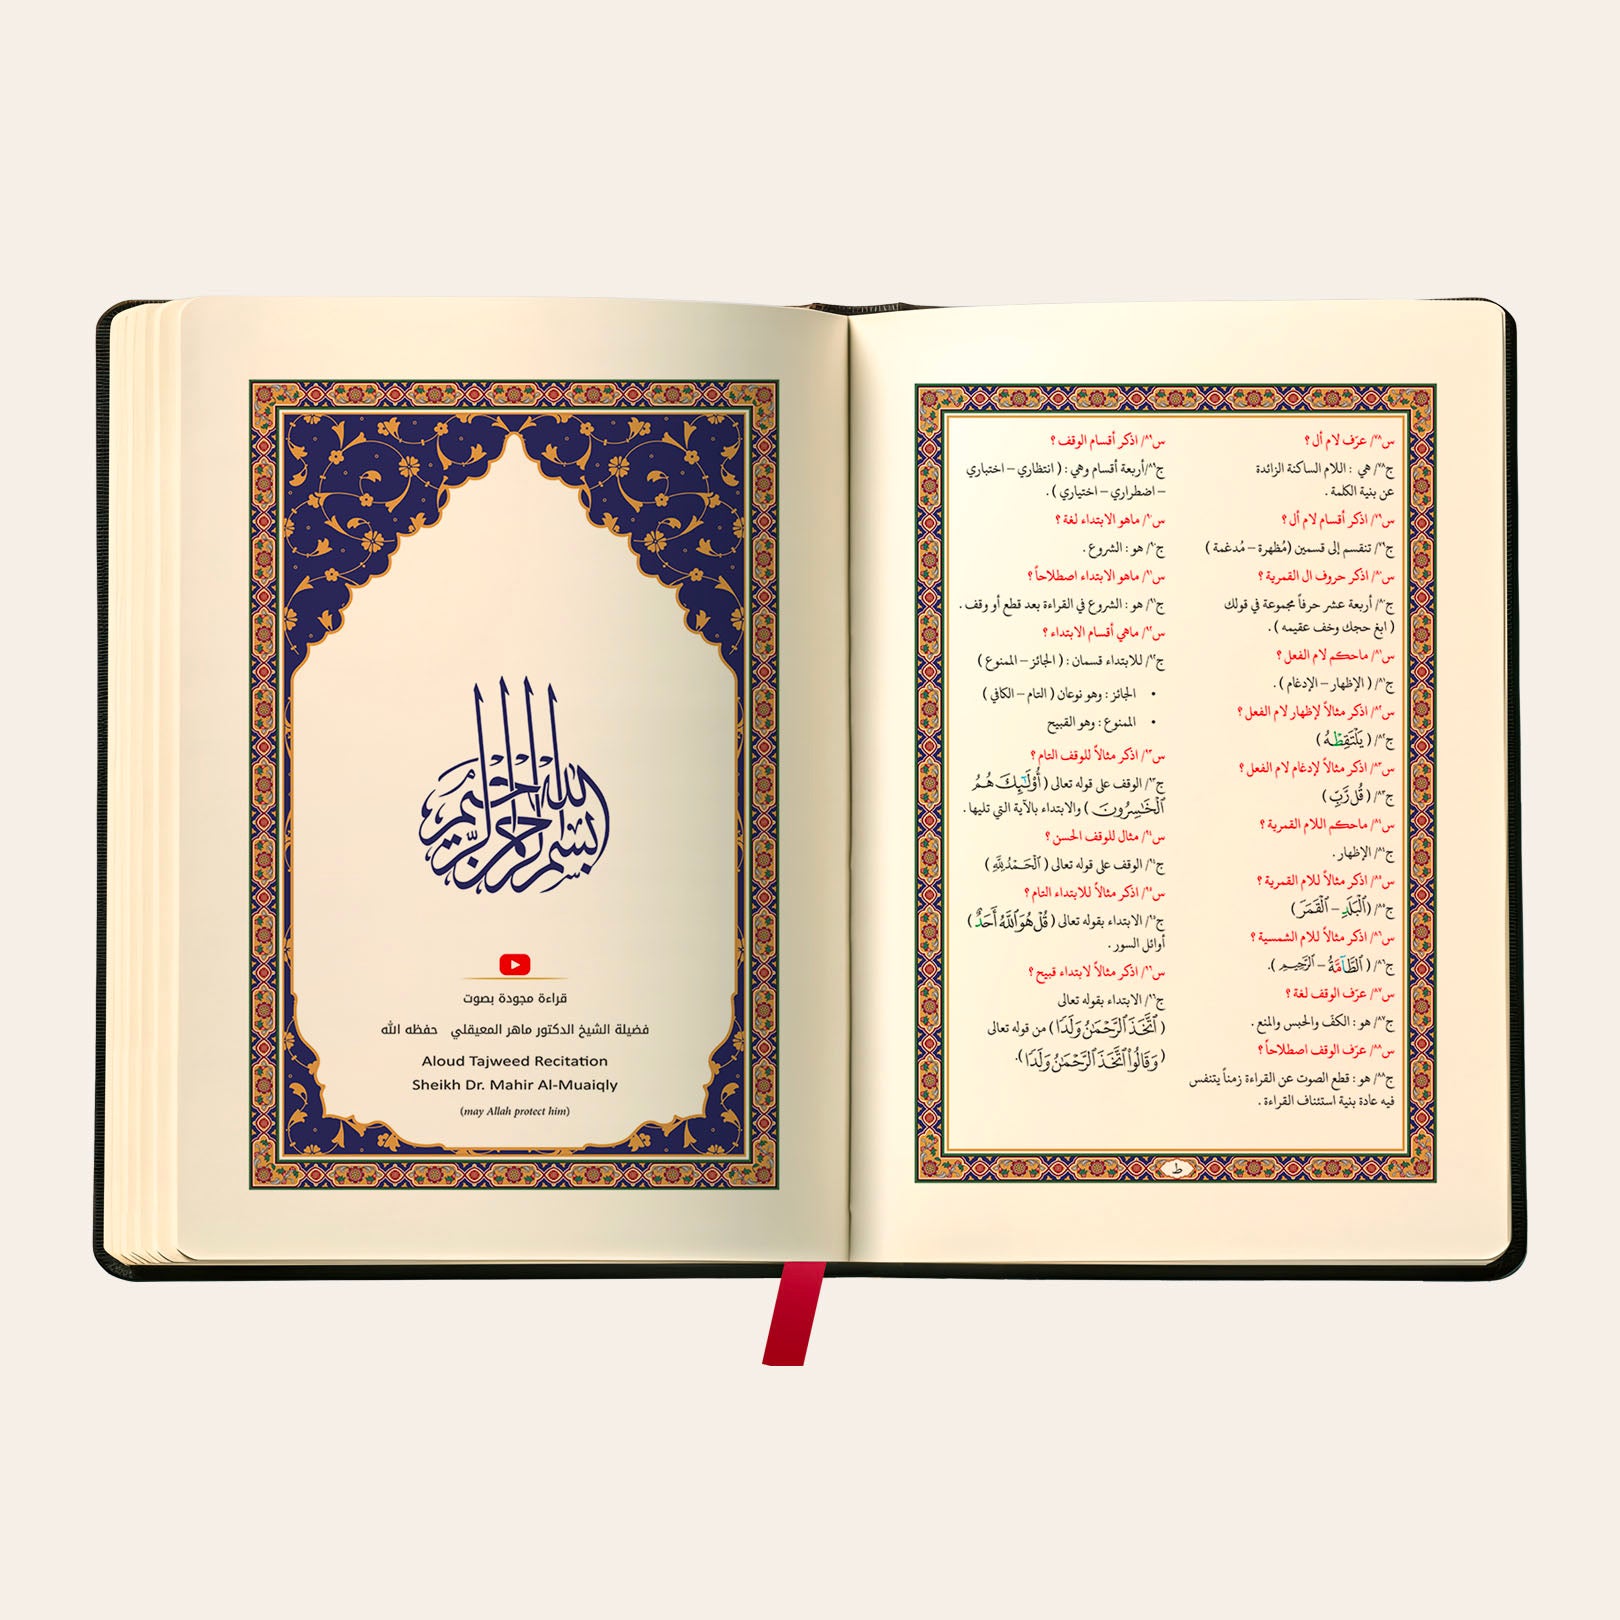 س٧٨/ عرّف لام أل ؟
ج٧٨/ هي : اللام الساكنة الزائدة
عن بنية الكلمة .
س٧٩/ اذكر أقسام لام أل ؟
ج٧٩/ تنقسم إلى قسمين (مُظهرة – مُدغمة )
س٨٠/ اذكر حروف ال القمرية ؟
ج٨٠/ أربعة عشر حرفاً مجموعة في قولك
( ابغ حجك وخف عقيمه ) .
س٨١/ ماحكم لام الفعل ؟
ج٨١/ ( الإظهار – الإدغام ) .
س٨٢/ اذكر مثالاً لإظهار لام الفعل ؟
ج٨٢/ ( يَلْتَقِطْهُ )
س٨٣/ اذكر مثالاً لإدغام لام الفعل ؟
ج٨٣/ ( قُل رَّبِّ )
س٨٤/ ماحكم اللام القمرية ؟
ج٨٤/ الإظهار .
س٨٥/ اذكر مثالاً للام القمرية ؟
ج٨٥/ (ٱلْبَلَدِ – ٱلْقَمَرَ )
س٨٦/ اذكر مثالاً للام الشمسية ؟
ج٨٦/ ( ٱلطَّآمَّةُ – ٱلرَّحِيمِ ).
س٨٧/ عرّف الوقف لغة ؟
ج٨٧/ هو : الكفّ والحبس والمنع .
س٨٨/ عرّف الوقف اصطلاحاً ؟
ج٨٨/ هو : قطع الصوت عن القراءة زمناً يتنفس
فيه عادة بنية استئناف القراءة .
س٨٩/ اذكر أقسام الوقف ؟
ج٨٩/أربعة أقسام وهي : ( انتظاري – اختباري
– اضطراري – اختياري ) .
س٩٠/ ماهو الابتداء لغة ؟
ج٩٠/ هو : الشروع .
س٩١/ ماهو الابتداء اصطلاحاً ؟
ج٩١/ هو : الشروع في القراءة بعد قطع أو وقف .
س٩٢/ ماهي أقسام الابتداء ؟
ج٩٢/ للابتداء قسمان : ( الجائز – الممنوع )
• الجائز : وهو نوعان ( التام – الكافي )
• الممنوع : وهو القبيح
س٩٣/ اذكر مثالاً للوقف التام ؟
ج٩٣/ الوقف على قوله تعالى ( أُوْلَٰٓئِكَ هُمُ
ٱلْخَٰسِرُونَ ) والابتداء بالآية التي تليها .
س٩٤/ مثال للوقف الحسن ؟
ج٩٤/ الوقف على قوله تعالى ( ٱلْحَمْدُ لِلَّهِ )
س٩٥/ اذكر مثالاً للابتداء التام ؟
ج٩٥/ الابتداء بقوله تعالى ( قُلْ هُوَ ٱللَّهُ أَحَدٌ )
أوائل السور .
س٩٦/ اذكر مثالاً لابتداء قبيح ؟
ج٩٦/ الابتداء بقوله تعالى
( ٱتَّخَذَ ٱلرَّحْمَٰنُ وَلَدًا ) من قوله تعالى
( وَقَالُوا۟ ٱتَّخَذَ ٱلرَّحْمَٰنُ وَلَدًا ).
ط
بسم الله الرحمن الرحيم
قراءة مجودة بصوت
فضيلة الشيخ الدكتور ماهر المعيقلي حفظه الله
Aloud Tajweed Recitation
Sheikh Dr. Mahir Al-Muaiqly
(may Allah protect him)